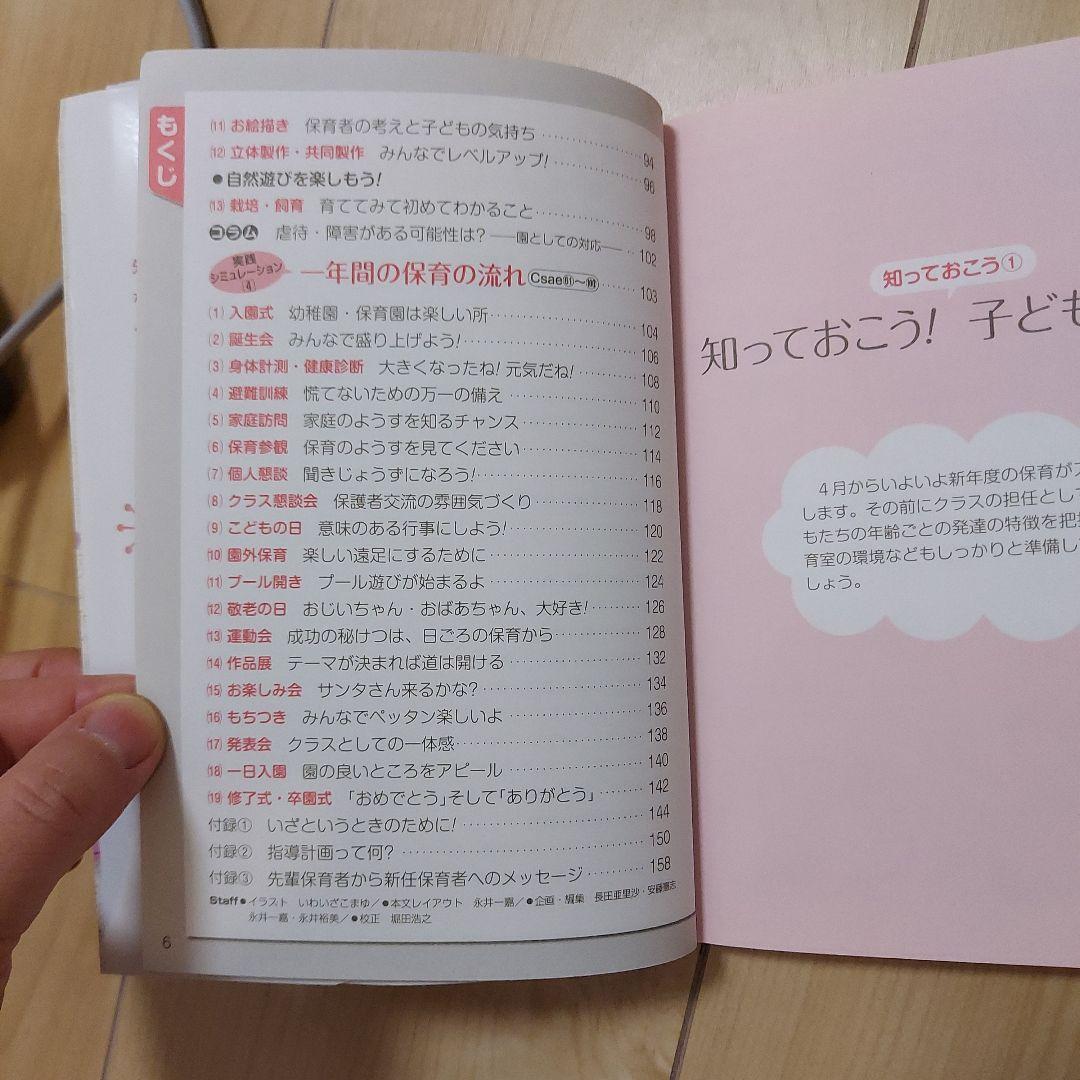 もくじ
⑾ お絵描き 保育者の考えと子どもの気持ち 94
⑿ 立体製作・共同製作 みんなでレベルアップ! 96
●自然遊びを楽しもう!
⒀ 栽培・飼育 育ててみて初めてわかること 98
コラム 虐待・障害がある可能性は? ―園としての対応― 102
実践シミュレーション⑷ 一年間の保育の流れ 103
⑴ 入園式 幼稚園・保育園は楽しい所 104
⑵ 誕生会 みんなで盛り上げよう! 106
⑶ 身体計測・健康診断 大きくなったね! 元気だね! 108
⑷ 避難訓練 慌てないための万一の備え 110
⑸ 家庭訪問 家庭のようすを知るチャンス 112
⑹ 保育参観 保育のようすを見てください 114
⑺ 個人懇談 聞きじょうずになろう! 116
⑻ クラス懇談会 保護者交流の雰囲気づくり 118
⑼ こどもの日 意味のある行事にしよう! 120
⑽ 園外保育 楽しい遠足にするために 122
⑾ プール開き プール遊びが始まるよ 124
⑿ 敬老の日 おじいちゃん・おばあちゃん、大好き! 126
⒀ 運動会 成功の秘けつは、日ごろの保育から 128
⒁ 作品展 テーマが決まれば道は開ける 132
⒂ お楽しみ会 サンタさん来るかな? 134
⒃ もちつき みんなでペッタン楽しいよ 136
⒄ 発表会 クラスとしての一体感 138
⒅ 一日入園 園の良いところをアピール 140
⒆ 修了式・卒園式 「おめでとう」そして「ありがとう」 142
付録① いざというときのために! 144
付録② 指導計画って何? 150
付録③ 先輩保育者から新任保育者へのメッセージ 158
Staff●イラスト いわいざこまゆ/●本文レイアウト 永井一嘉/●企画・編集 長田亜里沙・安藤憲志
永井一嘉・永井裕美/●校正 堀田浩之
6
知っておこう①
知っておこう! 子ども
4月からいよいよ新年度の保育がス
します。その前にクラスの担任として
もたちの年齢ごとの発達の特徴を把
育室の環境などもしっかりと準備し
しょう。